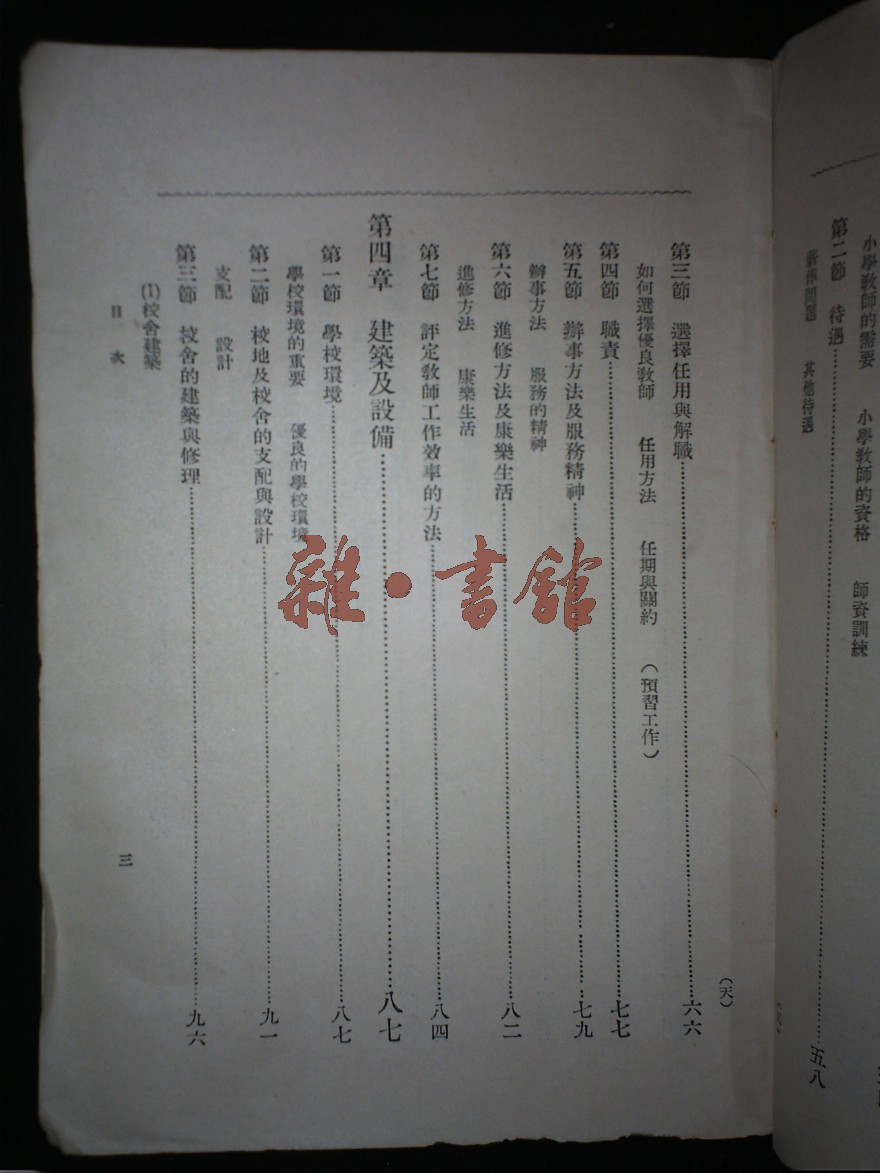 小學教師的需要　小學教師的資格　師資訓練
第二節　待遇…………五八
薪俸問題　其他待遇
（天）
第三節　選擇任用與解職…………六六
如何選擇優良教師　任用方法　任期與關約　（預習工作）
第四節　職責…………七七
第五節　辦事方法及服務精神…………七九
辦事方法　服務的精神
第六節　進修方法及康樂生活…………八二
進修方法　康樂生活
第七節　評定教師工作效率的方法…………八四
第四章　建築及設備…………八七
第一節　學校環境…………八七
學校環境的重要　優良的學校環境
第二節　校地及校舍的支配與設計…………九一
支配　設計
第三節　校舍的建築與修理…………九六
(1)校舍建築
目次　三
雜·書館